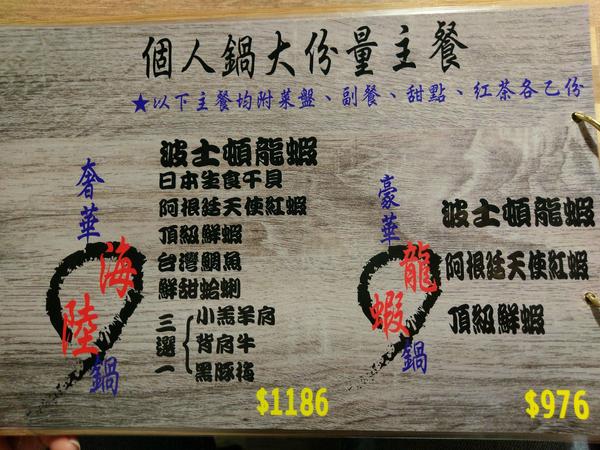 個人鍋大份量主餐
★以下主餐均附菜盤、副餐、甜點、紅茶各乙份
奢華海陸鍋
波士頓龍蝦
日本生食干貝
阿根廷天使紅蝦
頂級鮮蝦
台灣鯛魚
鮮甜蛤蜊
三選一
小羔羊肩
背肩牛
黑豚梅
$1186
豪華龍蝦鍋
波士頓龍蝦
阿根廷天使紅蝦
頂級鮮蝦
$976